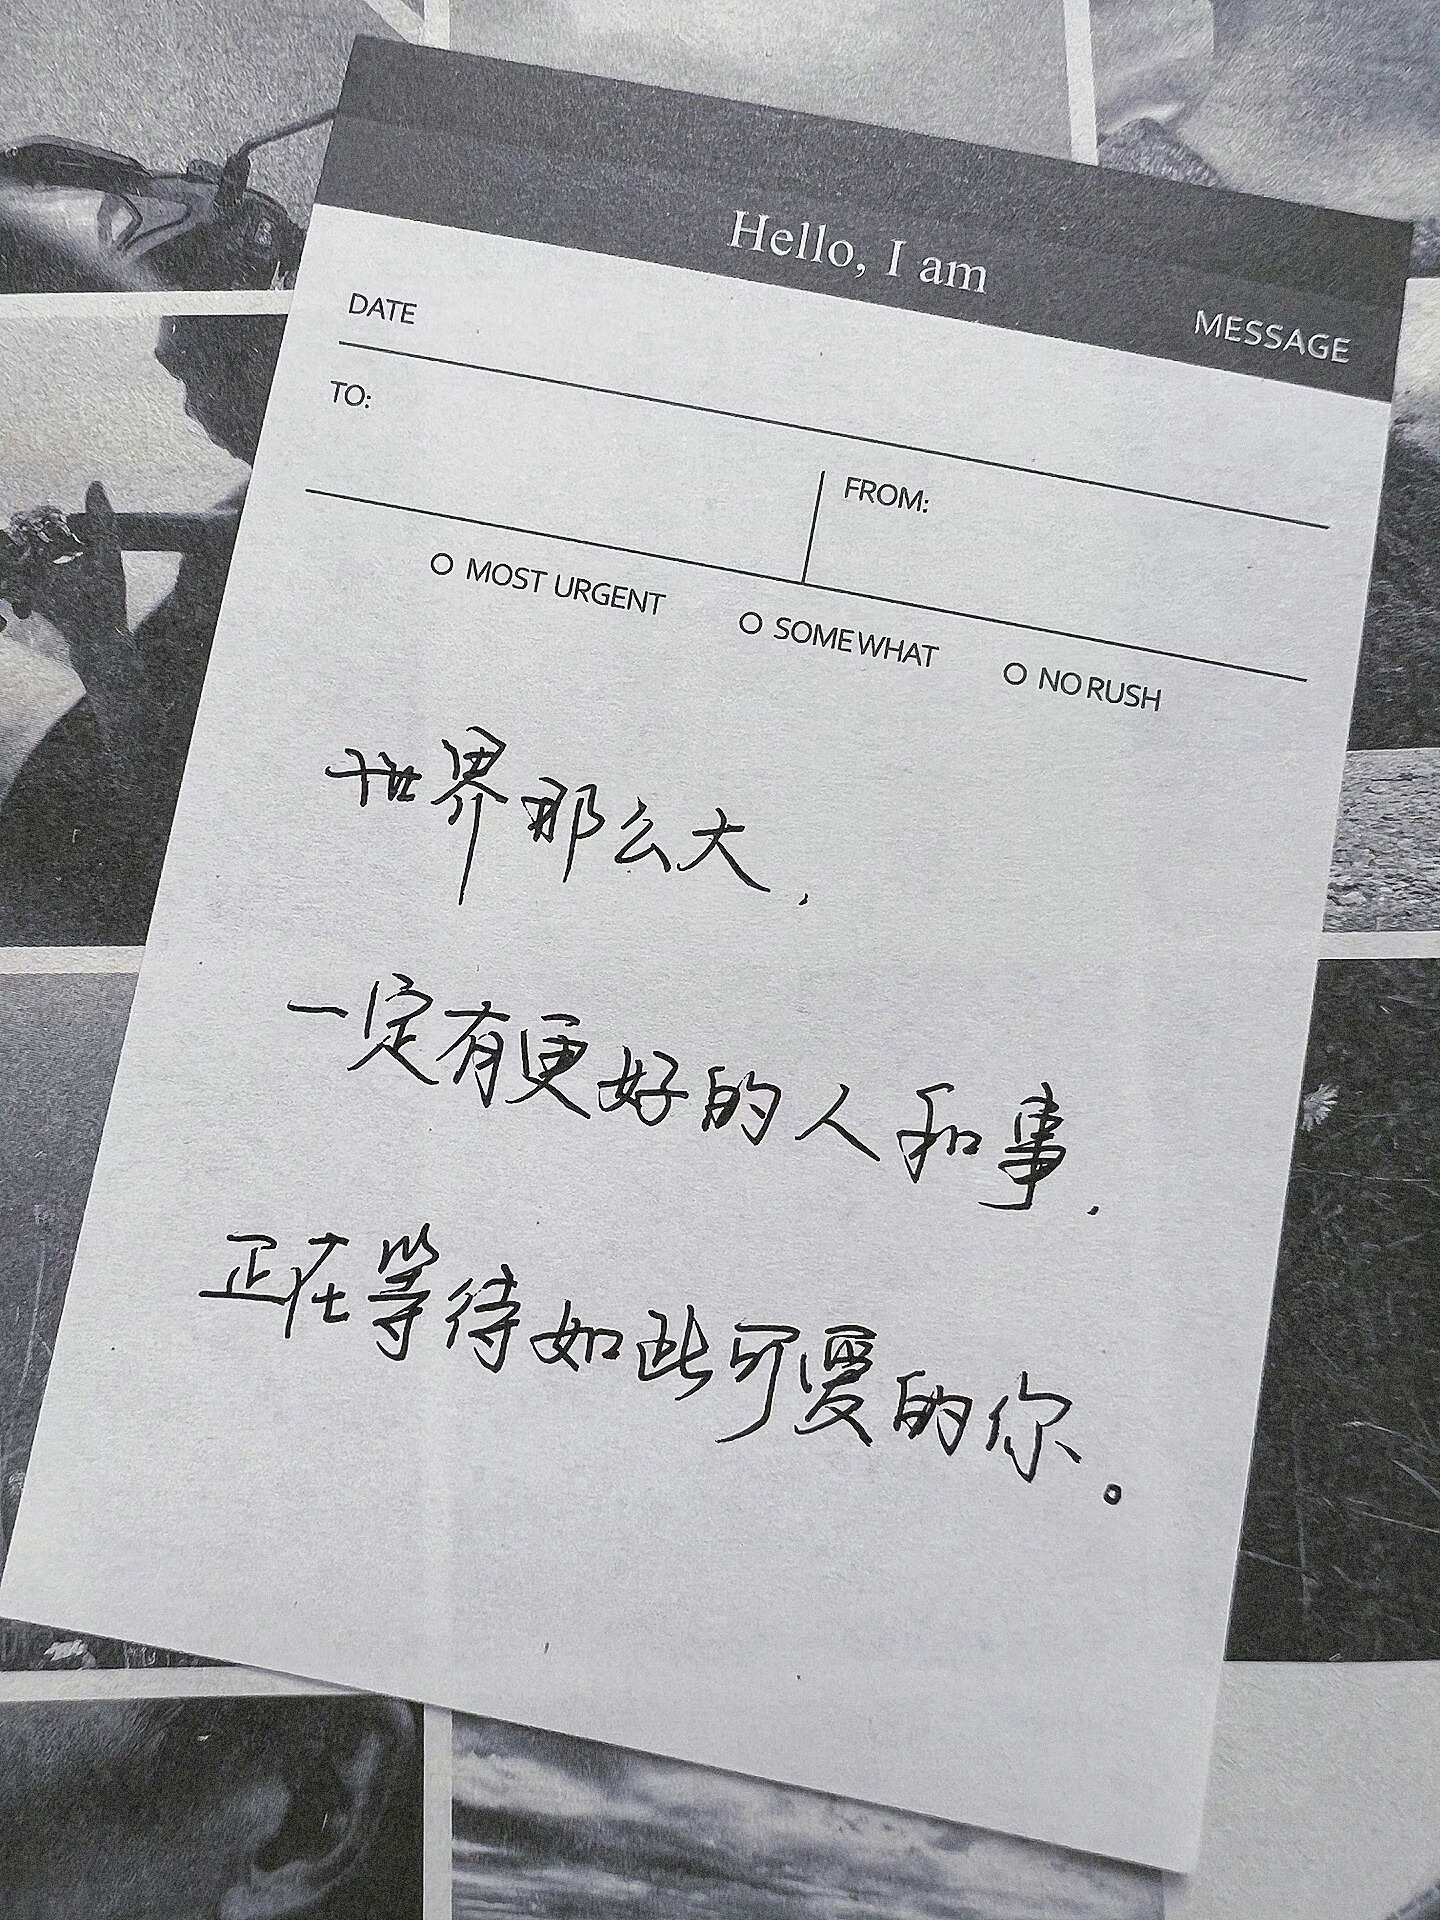 Hello, I am
MESSAGE
DATE
TO:
FROM:
O MOST URGENT
O SOMEWHAT
O NO RUSH
世界那么大,
一定有更好的人和事,
正在等待如此可爱的你。